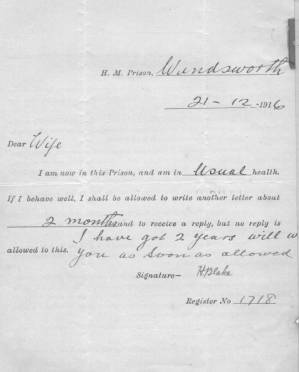 H. M. Prison, Wandsworth
21-12-1916
Dear Wife
I am now in this Prison, and am in Usual health.
If I behave well, I shall be allowed to write another letter about
2 months and to receive a reply, but no reply is
I have got 2 years will w
allowed to this. you as soon as allowed
Signature— H Blake
Register No 1718